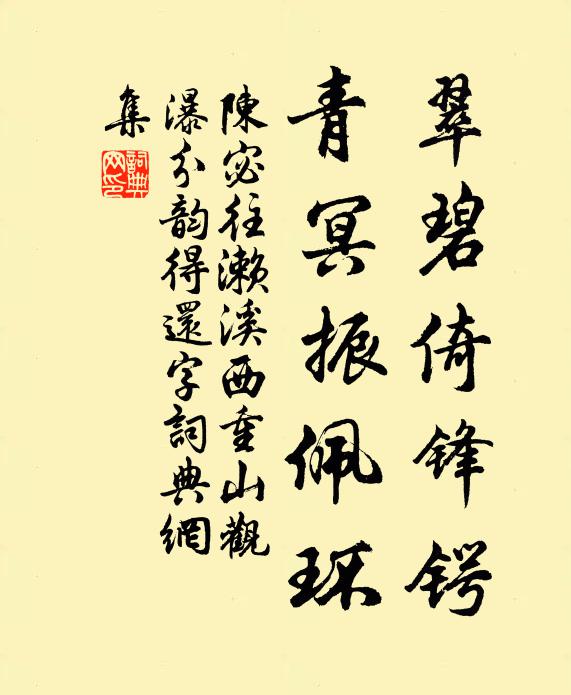 翠碧倚锋锷
青冥振佩环
陳宓往濑溪西重山觀
瀑分韵得還字詞典網
集
詞典网印